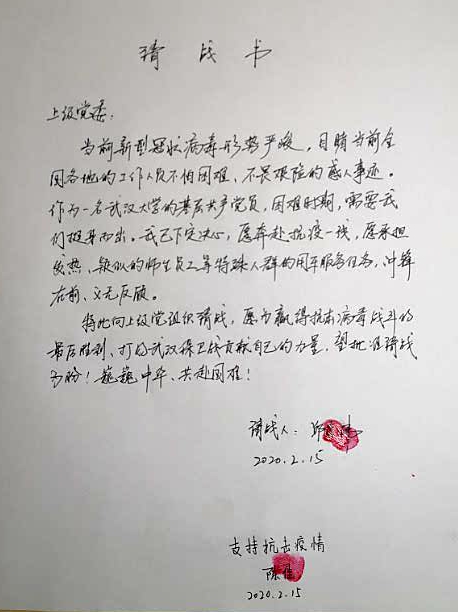 请战书
上级党委：
当前新型冠状病毒形势严峻，目睹当前全
国各地的工作人员不怕困难，不畏艰险的感人事迹。
作为一名武汉大学的基层共产党员，困难时期，需要我
们挺身而出。我已下定决心，愿奔赴抗疫一线，愿承担
发热、疑似的师生员工等特殊人群的用车服务任务，冲锋
在前、义无反顾。
特此向上级党组织请战，愿为赢得抗击病毒战斗的
最后胜利、打好武汉保卫战贡献自己的力量，望批准请战
为盼！巍巍中华、共赴国难！
请战人：邱
2020.2.15
支持抗击疫情
陈
2020.2.15